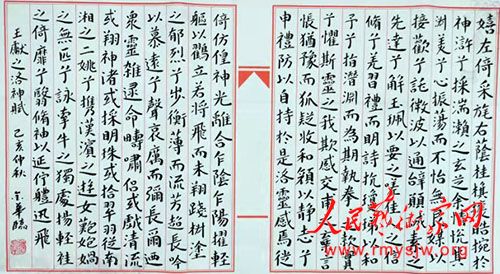 嬉左倚采旄右蔭桂旗攘皓腕於
神滸兮採湍瀨之玄芝余情悅其
淑美兮心振蕩而不怡無良媒以
接歡兮託微波以通辭願誠素之
先達兮解玉珮以要之嗟佳人
脩兮羌習禮而明詩抗瓊
予兮指潛淵而為期執拳
兮懼斯靈之我欺感交甫之棄言
悵猶豫而狐疑收和顏以靜志兮
申禮防以自持於是洛靈感焉徙
倚彷徨神光離合乍陰乍陽擢輕
軀以鶴立若將飛而未翔踐椒塗
之郁烈兮步衡薄而流芳超長吟
以慕遠兮聲哀厲而彌長爾迺
眾靈雜遝命疇嘯侶或戲清流
或翔神渚或採明珠或拾翠羽從南
湘之二姚兮攜漢濱之遊女歎匏媧
之無匹兮詠牽牛之獨處揚輕袿
之倚靡兮翳脩袖以延佇體迅飛
王獻之洛神賦 己亥仲秋
人民藝術家网
www.rmysjw.com